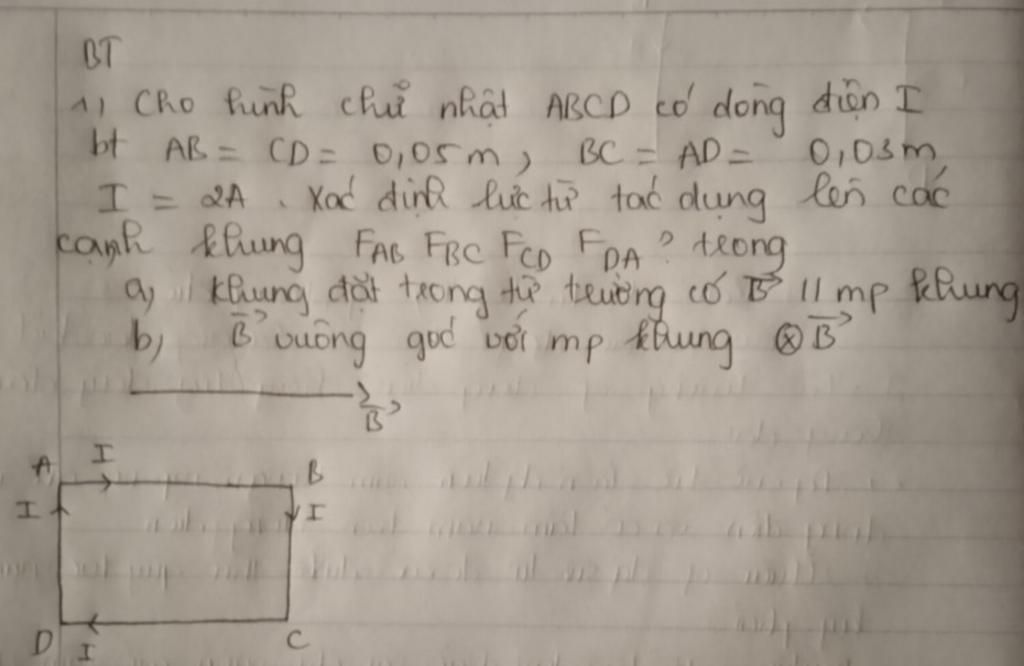 BT
1) Cho hình chữ nhật ABCD có dòng điện I
bt AB = CD = 0,05m, BC = AD = 0,03m
I = 2A. Xác định lực từ tác dụng lên các
cạnh khung F_AB F_BC F_CD F_DA? trong
a) khung đặt trong từ trường có B⃗ // mp khung
b) B⃗ vuông góc với mp khung ⊗B⃗
B⃗
A I B
I I
D I C